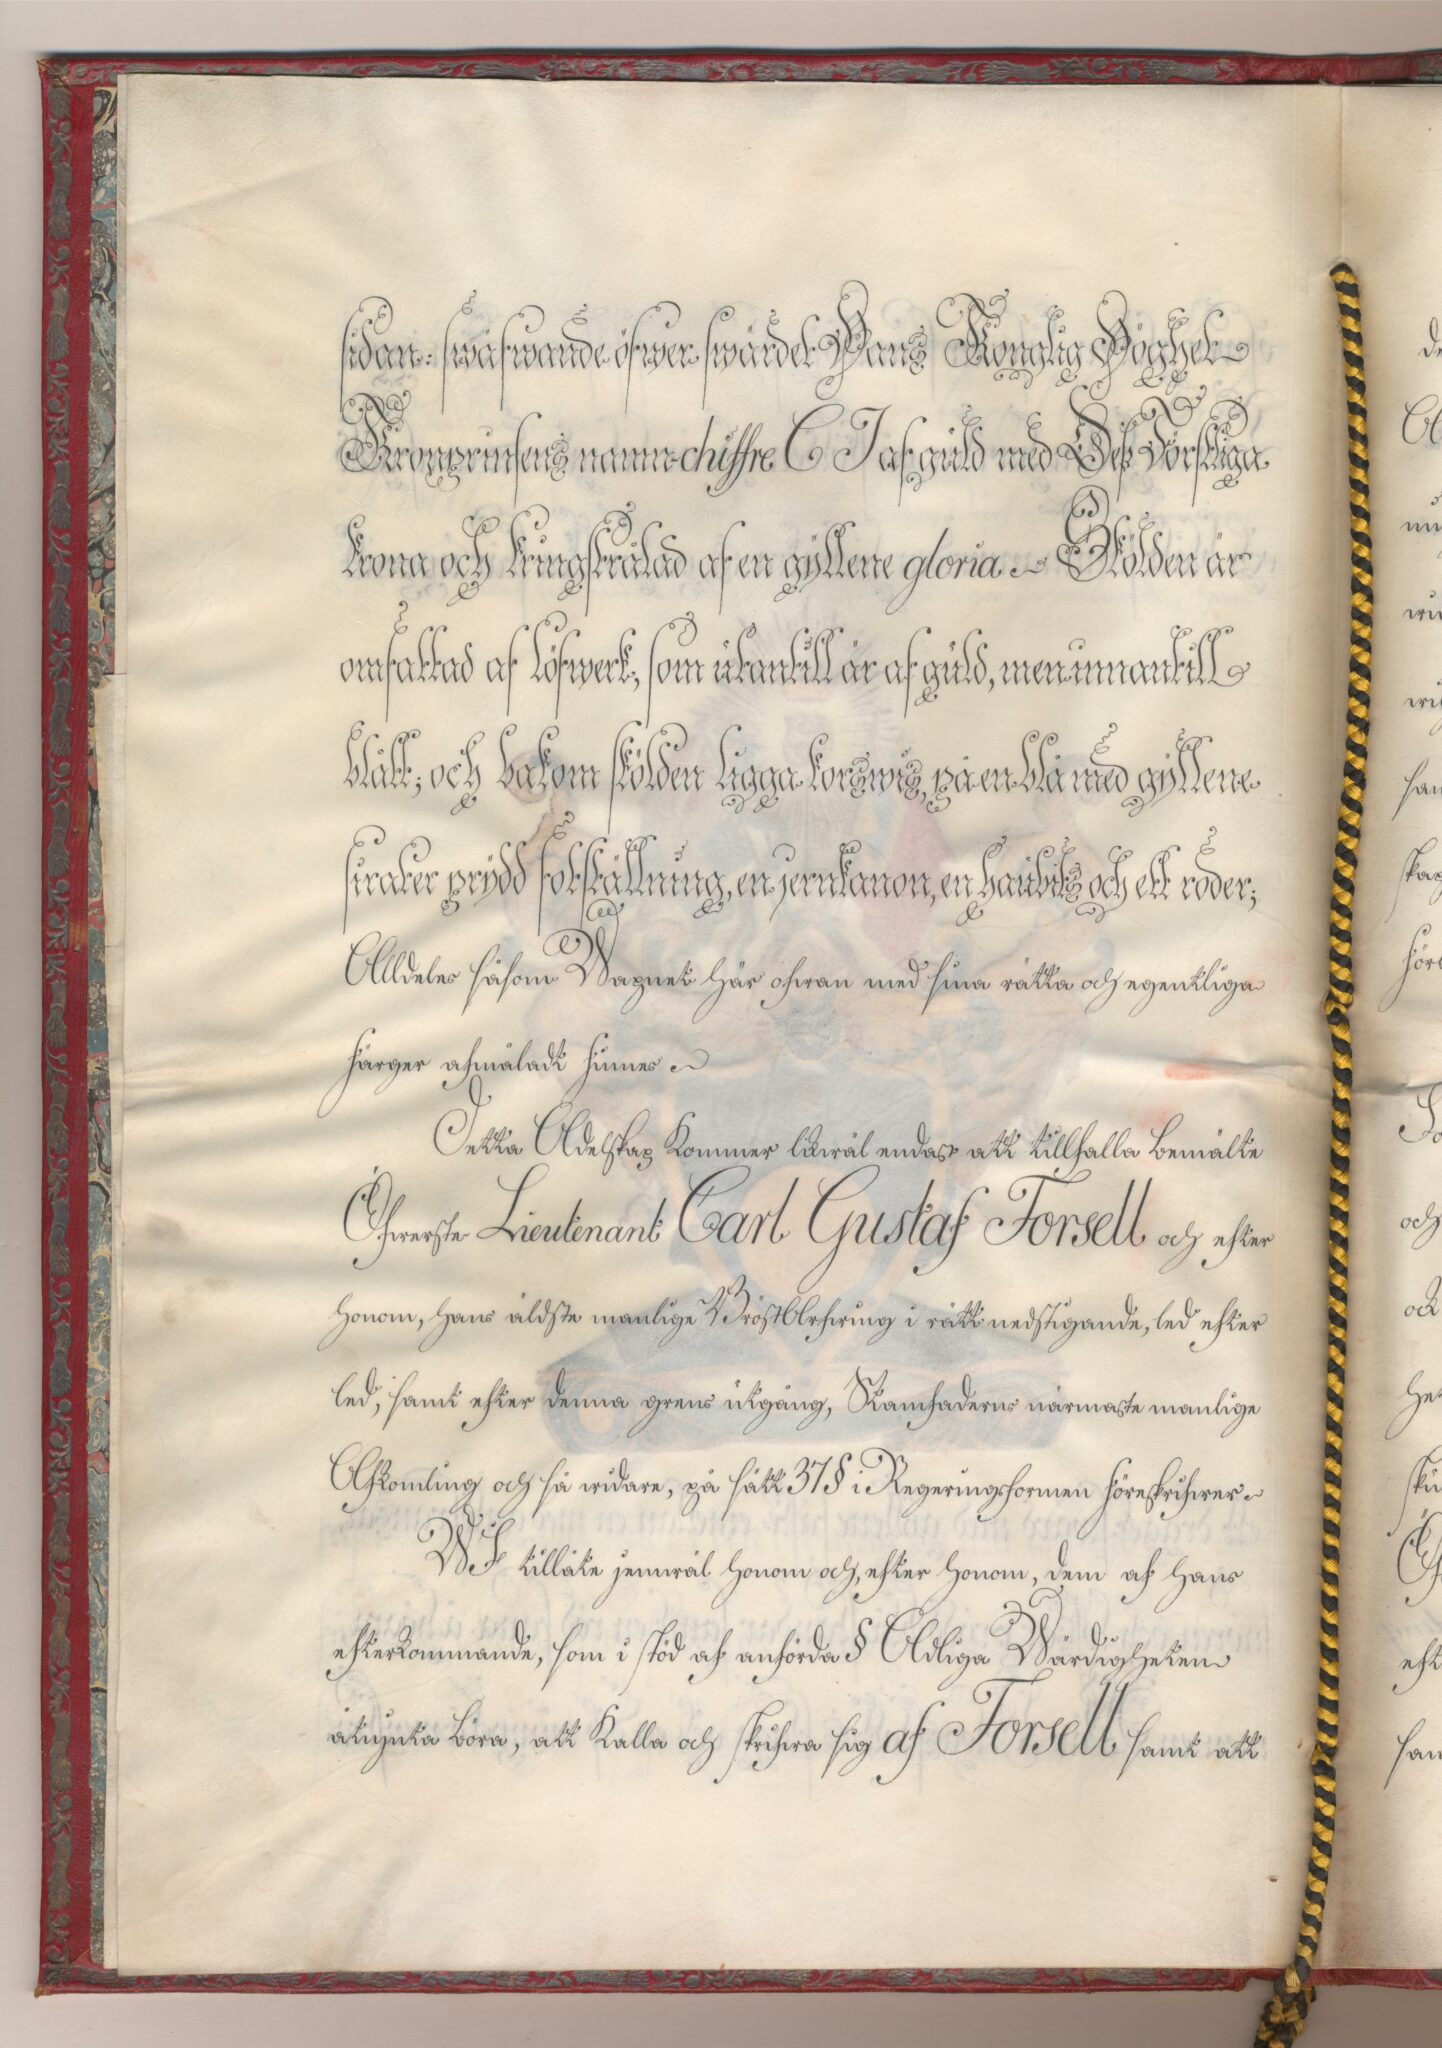 sidan: swäfwande öfwer swärdet Hans Konglig Höghet
Kronprinsens namn-chiffre C J af guld med Deß Förstliga
krona och kringstrålad af en gyllene gloria. Skölden är
omfattad af löfwerk, som utantill är af guld, men innantill
blått; och bakom skölden ligga korswis, på en blå med gyllene
sirater prydd fotställning, en jernkanon, en haubits och ett roder;
Alldeles såsom Wapnet här ofwan med sina rätta och egentliga
färger afmåladt finnes.
Detta Adelskap kommer likwäl endast att tillfalla bemälte
Öfwerste Lieutenant Carl Gustaf Forsell och efter
honom, hans äldste manlige BröstArfwing i rätt nedstigande, led efter
led, samt efter denna grens utgång, Stamfaderns närmaste manlige
Afkomling och så widare, på sätt 37 § i Regeringsformen föreskrifwer.
WJ tillåte jemwäl honom och, efter honom, dem af hans
efterkommande, som i stöd af anförda § Adliga Wärdigheten
åtnjuta böra, att kalla och skrifwa sig af Forsell samt att